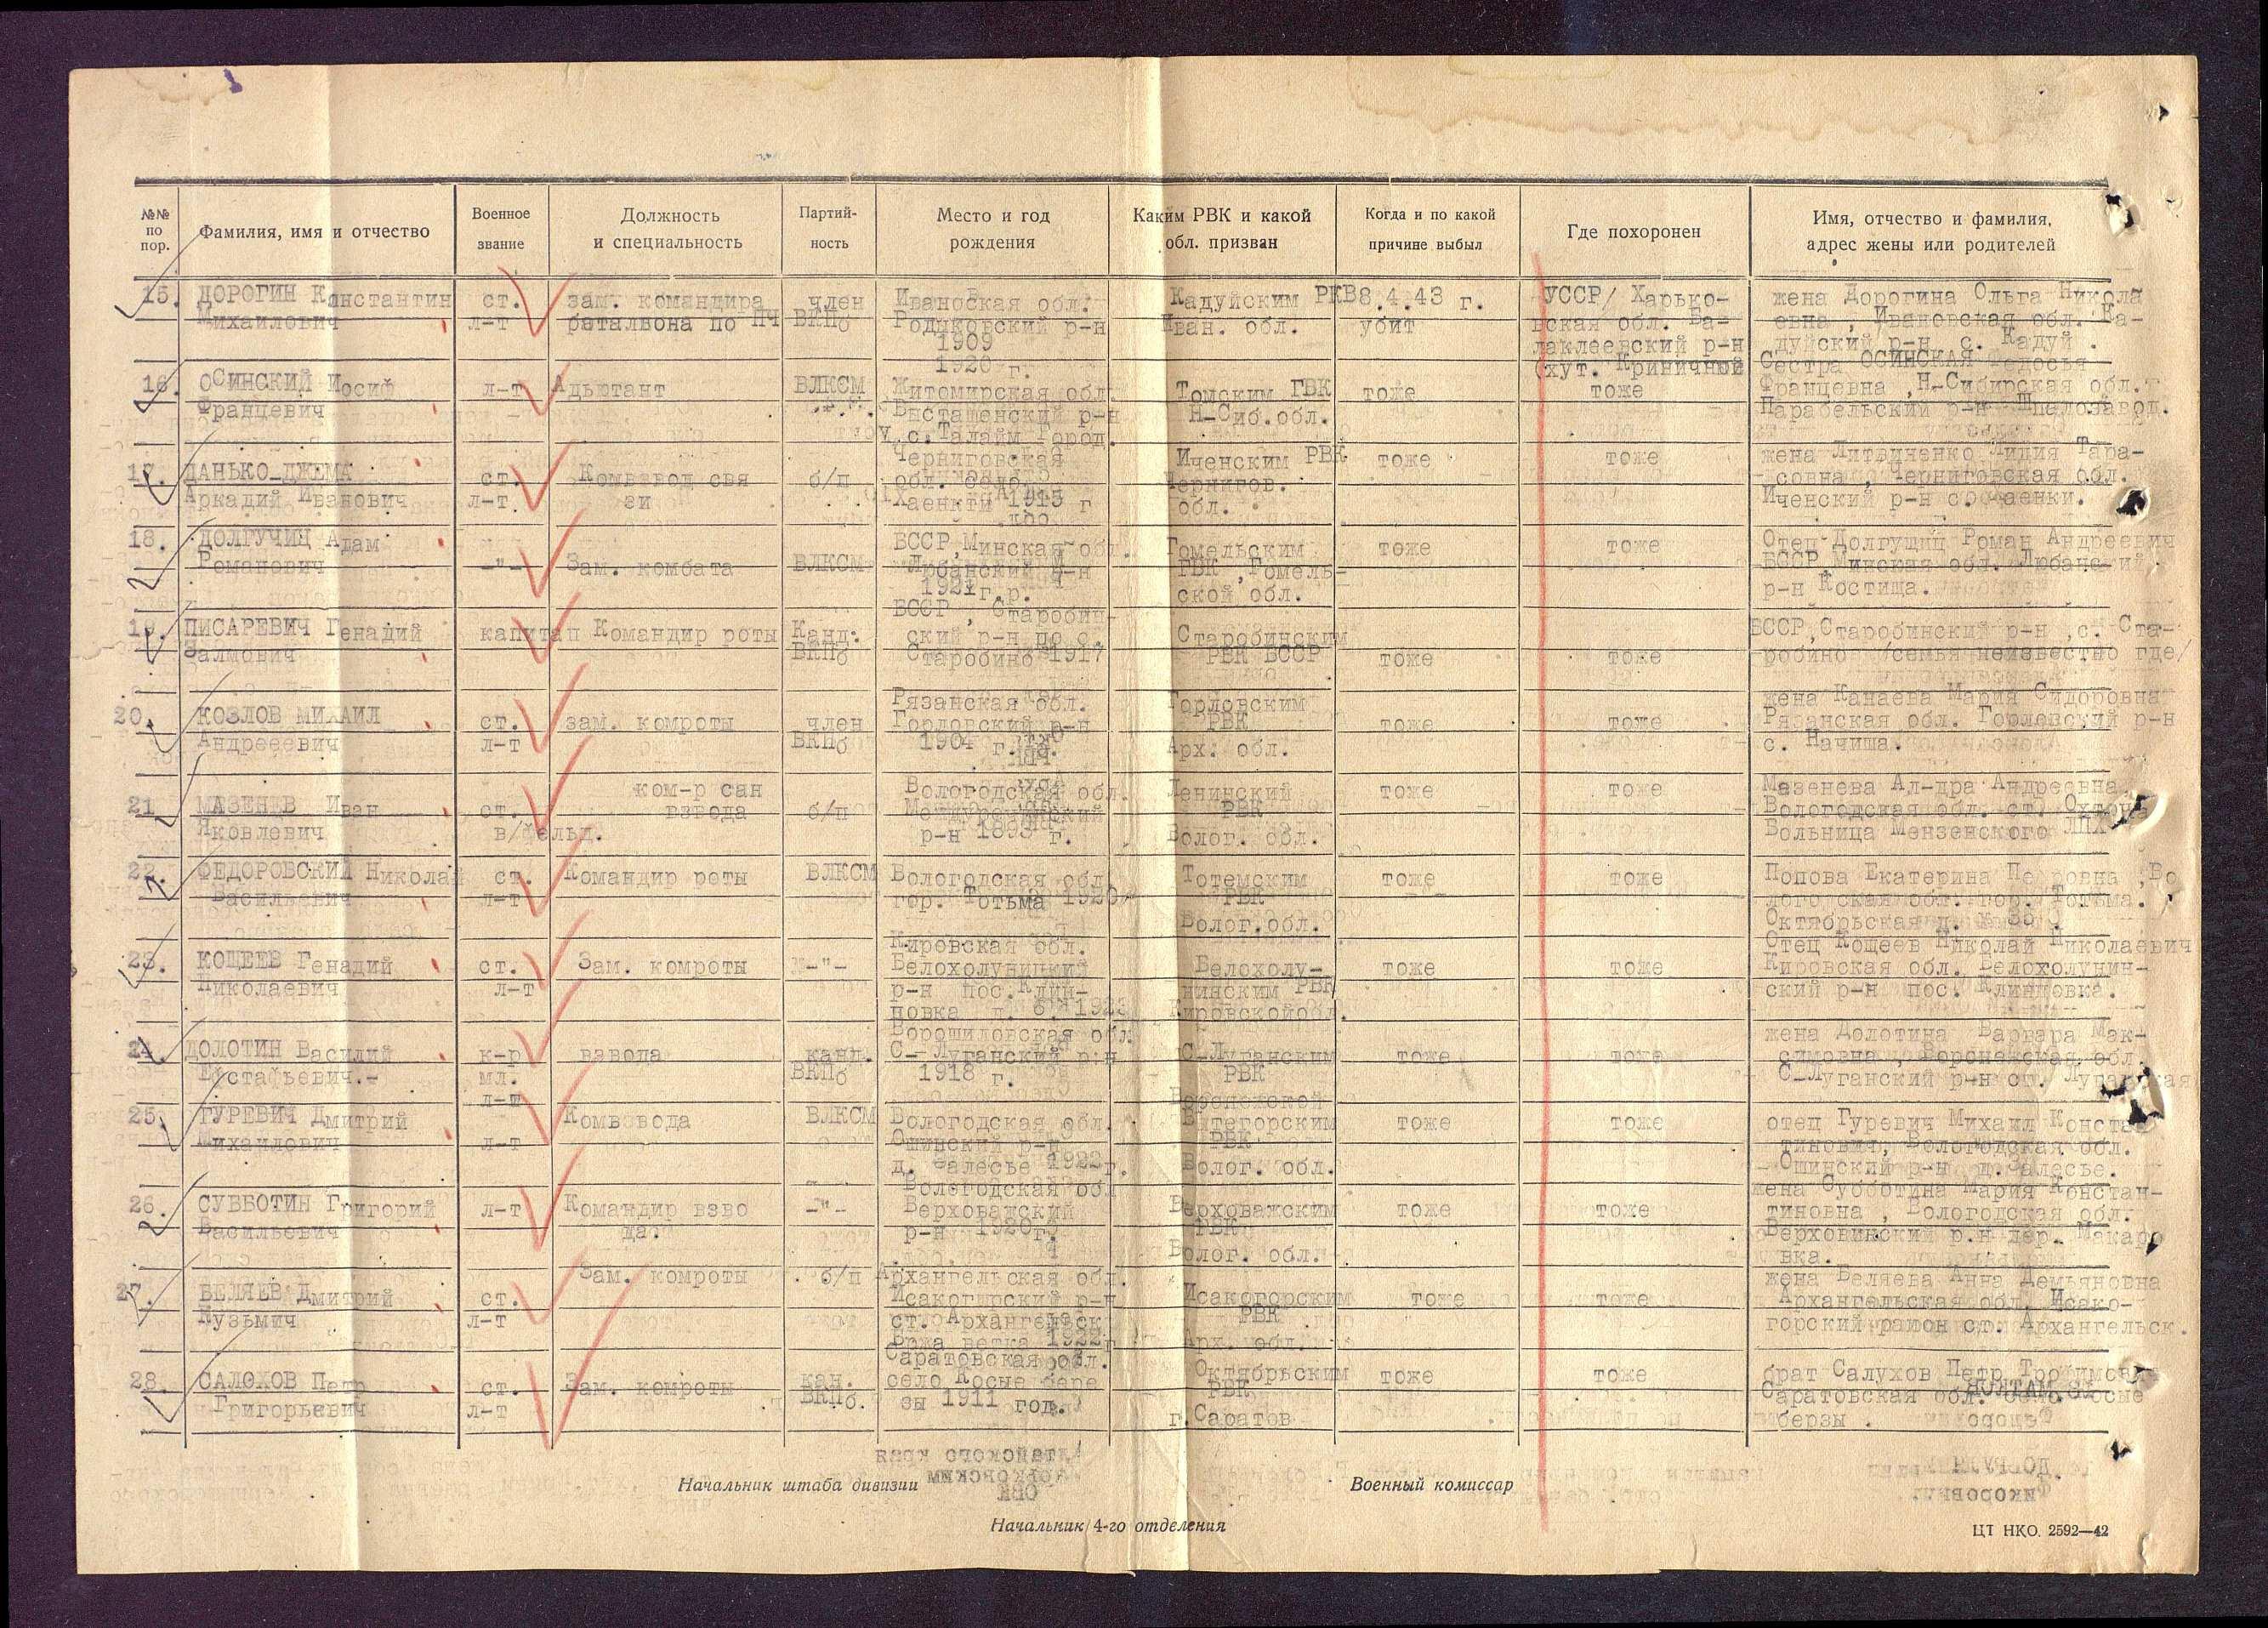 №№ по пор.
Фамилия, имя и отчество
Военное звание
Должность и специальность
Партий- ность
Место и год рождения
Каким РВК и какой обл. призван
Когда и по какой причине выбыл
Где похоронен
Имя, отчество и фамилия, адрес жены или родителей
15. ДОРОГИН Константин ст. зам. командира член Ивановская обл. Кадуйским РКВ 8.4.43 г. УССР/ Харько- жена Дорогина Ольга Никола
Михайлович л-т баталвона по ПЧ ВКПб Родиковский р-н Иван. обл. убит вская обл. Ба- евна , Ивановская обл. Ка-
1909 лаклеевский р-н дуйский р-н с. Кадуй .
1920 г. (хут. Криничное Сестра ОСИНСКАЯ Федосья
16. ОСИНСКИЙ Иосиф л-т Адьютант ВЛКСМ Житомирская обл. Томским ГВК тоже тоже Францевна ,Н-Сибирская обл.
Францевич р-н Н-Сиб.обл. Парабельский р-н Шпалозавод.
с. Талайм Город.
Черниговская Иченским РВК тоже тоже жена Литвиненко Лидия Тара-
17. ДАНЬКО-ДЖЕМА ст. Комвзвод свя б/п обл. Чернигов. совна , Черниговская обл.
Аркадий Иванович л-т. зи 1915 г обл. Иченский р-н с.
18. ДОЛГУЧИЦ Адам БССР,Минская обл. Гомельским тоже тоже Отец Долгушиц Роман Андреевич
Романович -"- Зам. комбата ВЛКСМ Любанский р-н РВК ,Гомель- БССР,Минская обл. Любанский
г.р. ской обл. р-н Костища.
БССР , Старобин-
19. ПИСАРЕВИЧ Генадий капитан Командир роты Канд. ский р-н по с. Старобинским БССР,Старобинский р-н ,с. Ста-
Залмович ВКПб Старобино 1917 РВК БССР тоже тоже робино /семья неизвестно где/
Рязанская обл. Горловским жена Канаева Мария Сидоровна
20. КОЗЛОВ МИХАИЛ ст. зам. комроты член Горловский р-н РВК тоже тоже Рязанская обл. Горловский р-н
Андрееевич л-т ВКПб 1904 г. Арх. обл. с. Начиша.
ком-р сан Вологодская обл. Ленинский тоже тоже Мазенева Ал-дра Андреевна.
21 МАЗЕНЕВ Иван ст. взвода б/п РВК Вологодская обл. ст.
Яковлевич в/фельд. р-н г. Волог. обл. Больница Мензенского ЛПХ
22. ФЕДОРОВСКИЙ Николай ст. Командир роты ВЛКСМ Вологодская обл. Тотемским тоже тоже Попова Екатерина Петровна ,Во
Васильевич л-т гор. Тотьма 1920 РВК логодская обл. гор. Тотьма.
Волог.обл. Октябрьская
Кировская обл. Отец Кощеев Николай Николаевич
23. КОЩЕЕВ Генадий ст. Зам. комроты -"- Белохолуницкий Белохолу- тоже тоже Кировская обл. Белохолунин-
Николаевич л-т р-н пос. Клин- нинским РВК ский р-н пос. Климовка.
новка Кировскойобл.
Ворошиловская обл жена Долотина Варвара Мак-
24. ДОЛОТИН Василий к-р взвода канд. С-Луганский р-н С-Луганским тоже тоже симовна , Воронежская обл.
Евстафьевич.- мл. ВКПб 1918 г. РВК С-Луганский р-н ст. Луганская
л-т
25. ГУРЕВИЧ Дмитрий Комвзвода ВЛКСМ Вологодская обл. Вытегорским тоже тоже отец Гуревич Михаил Констан
Михайлович л-т Ошинский р-н РВК тинович, Вологодская обл.
д. Залесье 1922 г. Волог. обл. Ошинский р-н д.Залесье.
Вологодская обл жена Субботина Мария Констан-
26. СУББОТИН Григорий л-т Командир взво -"- Верховажский Верховажским тоже тоже тиновна , Вологодская обл.
Васильевич да. р-н 1920г. РВК Верховинский р.н дер. Макаро
Волог. обл. вка.
Зам. комроты б/п Архангельская обл. жена Беляева Анна Демьяновна
27. БЕЛЯЕВ Дмитрий ст. Исакогорский р-н Исакогорским тоже тоже Архангельская обл. Исако-
Кузьмич л-т ст. Архангельск РВК горский район ст. Архангельск.
ветка 1922г. Арх. обл.
Саратовская обл.
28. САЛЮХОВ Петр ст. Зам. комроты кан. село Косые бере Октябрьским тоже тоже брат Салухов Петр
Григорьевич л-т ВКПб. зы 1911 год. РВК Саратовская обл.
г.Саратов берзы .
Начальник штаба дивизии
Военный комиссар
Начальник 4-го отделения
ЦТ НКО. 2592—42